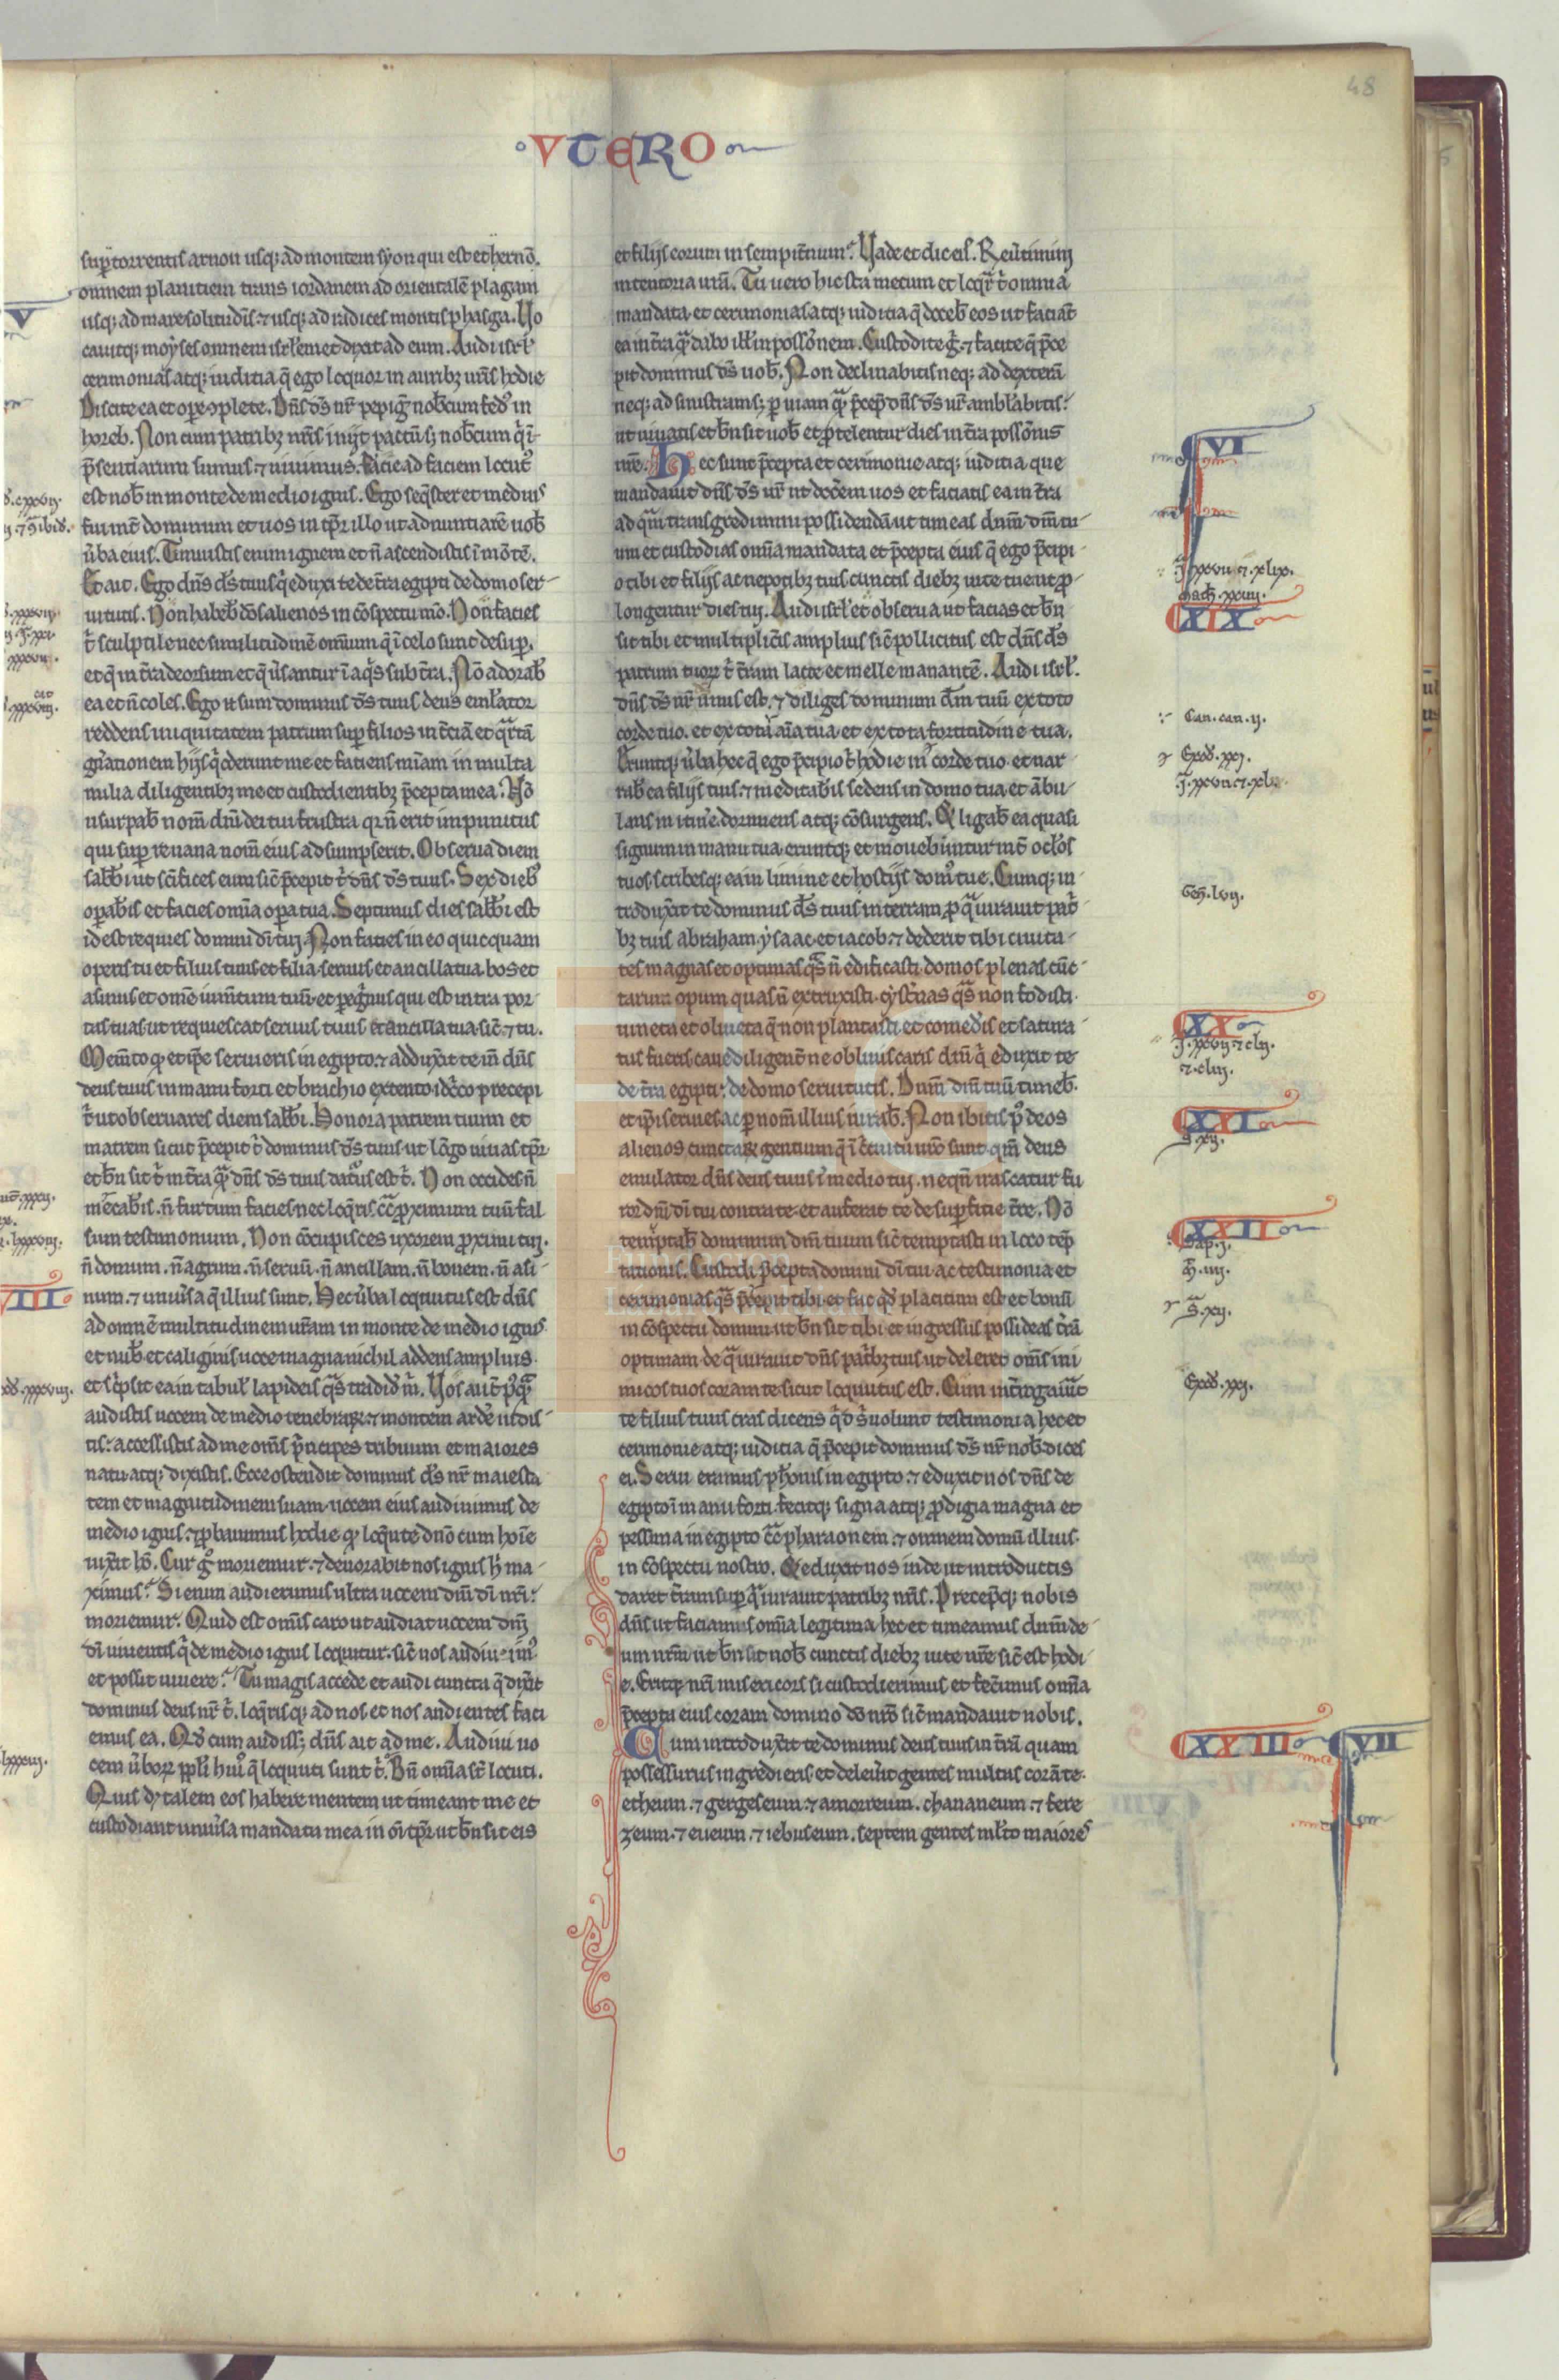 48
VTERO
sup torrentis arnon usq; ad montem syon qui est et hermō.
omnem planitiem trans iordanem ad orientalē plagam
usq; ad mare solitudīs ⁊ usq; ad radices montis phasga. Vo
cauitq; moyses omnem isrl'em et dixit ad eum. Audi isrl'
cerimonias atq; iudicia q̄ ego loquor in aurib; ur̄is hodie
Discite ea et ope ꝯplete. Dn̄s d's nr̄ pepiḡ nob̄cum fed' in
horeb. Non cum patrib; nr̄is iniit pactū s; nob̄cum q̄ ī
p̄sentiarum sumus ⁊ uiuimus. facie ad faciem locut'
est nob̄ in monte de medio ignis. Ego seq̄ster et medius
fui int̄ dominum et uos in tp̄r illo ut adnuntiarē uob̄
ūba eius. Timuistis enim ignem et n̄ ascendistis ī mōtē.
Et ait. Ego dn̄s d's tuus q̄ eduxi te de t̄ra egipti de domo ser-
uitutis. Non habeb̄ dōs alienos in cōspectu mō. Non facies
t̄ sculptile nec similitudinē omnium q̄ ī celo sunt desup.
et q̄ in t̄ra deorsum et q̄ ūsantur ī aq̄s sub t̄ra. Nō adorab̄
ea et n̄ coles. Ego n̄ sum dominus d's tuus deus emlator
reddens iniquitatem patrum sup filios in t̄ciā et q̄rtā
gn̄ationem hijs q̄ oderunt me et faciens mīam in multa
milia diligentib; me et custodientib; p̄cepta mea. Nō
usurpab̄ nom̄ dn̄i dei tui frustra qr n̄ erit impunitus
qui sup re uana nom̄ eius adsumpserit. Obserua diem
sabb̄i ut sc̄ifices eum sic̄ p̄cepit t̄ dn̄s d's tuus. Sex dieb'
opab̄is et facies om̄ia opa tua. Septimus dies sabb̄i est
id est requies domini dī tui. Non facies in eo quicquam
operis tu et filius tuus et filia seruus et ancilla tua bos et
asinus et omē ium̄tum tuū et peḡnus qui est intra por
tas tuas ut requiescat seruus tuus et ancilla tua sic̄ ⁊ tu.
Mem̄to q; et ipe seruieris in egipto ⁊ adduxit te in̄ dn̄s
deus tuus in manu forti et brachio extento. idc̄o precepi
t̄ ut obseruares diem sabb̄i. Honora patrem tuum et
matrem sicut p̄cepit t̄ dominus d's tuus ut lōgo uiuas tp̄r
et bn̄ sit t̄ in t̄ra q̄ dn̄s d's tuus daturus est t̄. Non occides n̄
mechab̄is. n̄ furtum facies nec loq̄ris cc̄ proximum tuū fal
sum testimonium. Non cōcupisces uxorem proximi tui.
n̄ domum. n̄ agrum. n̄ seruū. n̄ ancillam. n̄ bouem. n̄ asi
num. ⁊ uniūsa q̄ illius sunt. Hec ūba loquutus est dn̄s
ad omnē multitudinem ur̄am in monte de medio ignis
et nub̄ et caliginis uoce magna nichil addens amplius.
et sc̄psit ea in tabul' lapideis q̄s tradid' m̄. Vos aut̄ p'q̄
audistis uocem de medio tenebrar ⁊ montem ardē uidis-
tis: accessistis ad me om̄s p̄ncipes tribuum et maiores
natu atq; dixistis. Ecce ostendit dominus d's nr̄ maiesta
tem et magnitudinem suam uocem eius audiuimus de
medio ignis ⁊ probauimus hodie q; loq̄nte dn̄o cum hoīe
uix̄it hō. Cur g' moriemur ⁊ deuorabit nos ignis h̄ ma-
ximus. Si enim audierimus ultra uocem dn̄i dī nr̄i:
moriemur. Quid est om̄is caro ut audiat uocem dn̄i
dī uiuentis q̄ de medio ignis loquitur. sic̄ nos audiuim'
et possit uiuere. Tu magis accede et audi cuncta q̄ dix̄it
dominus deus nr̄ t̄. loq̄risq; ad nos et nos audientes faci
emus ea. Qd' cum audiss; dn̄s ait ad me. Audiui uo
cem ūbor ppl'i hui' q̄ loquuti sunt t̄. Bn̄ om̄ia st̄ locuti.
Quis d; talem eos habere mentem ut timeant me et
custodiant uniūsa mandata mea in oī tp̄r ut bn̄ sit eis
et filijs eorum in sempit̄num. Vade et dic eis. Reūtimini
in tentoria ur̄a. Tu uero hic sta mecum et loq̄r t̄ omnia
mandata et cerimonias atq; iudicia q̄ doceb̄ eos ut faciāt
ea in t̄ra q̄ dabo ill' in possōnem. Custodite ḡ ⁊ facite q̄ p̄ce
pit dominus d's uob̄. Non declinabitis neq; ad dexterā
neq; ad sinistram s; p uiam q̄ p̄cep̄ dn̄s d's ur̄ ambl'abitis:
ut uiuatis et bn̄ sit uob̄ et protelentur dies in t̄ra possōnis
ur̄e. Hec sunt p̄cepta et cerimonie atq; iudicia que
mandauit dn̄s d's ur̄ ut docēem uos et faciatis ea in t̄ra
ad q̄m transgredimini possidendā ut timeas dn̄m dm̄ tu-
um et custodias om̄ia mandata et p̄cepta eius q̄ ego p̄cipi-
o tibi et filijs ac nepotib; tuis cunctis dieb; uite tue ut pro-
longentur dies tui. Audi isrl' et obserua ut facias et bn̄
sit tibi et multipliceris amplius sic̄ pollicitus est dn̄s d's
patrum tuor t̄ t̄ram lacte et melle manantē. Audi isrl'.
dn̄s d's nr̄ unus est. ⁊ diliges dominum dm̄ tuū ex toto
corde tuo. et ex tota aīa tua et ex tota fortitudine tua.
Eruntq; ūba hec q̄ ego p̄cipio t̄ hodie in corde tuo et nar
rab̄ ea filijs tuis ⁊ meditab̄is sedens in domo tua et ābu-
lans in itin̄e. dormiens atq; cōsurgens. Et ligab̄ ea quasi
signum in manu tua eruntq; et mouebuntur int̄ ocl'os
tuos scribesq; ea in limine et hostijs dom' tue. Cumq; in-
troduxit te dominus d's tuus in terram pro q̄ iurauit pat̄
b; tuis abraham ysaac et iacob ⁊ dederit tibi ciuita-
tes magnas et optimas q̄s n̄ edificasti domos plenas cūc-
tarum opum quas n̄ extruxisti. cyst̄nas q̄s non fodisti.
uineta et oliueta q̄ non plantasti et comed̄is et satura-
tus fueris caue diligent̄ ne obliuiscaris dn̄i q̄ eduxit te
de t̄ra egipti. de domo seruitutis. Dn̄m dm̄ tuū timeb̄.
et ipi seruies ac p nom̄ illius iurab̄. Non ibitis p' deos
alienos cunctar gentium q̄ ī c̄cuitu uro sunt. qm̄ deus
emulator dn̄s deus tuus ī medio tui. neqn̄ irascatur fu
ror dn̄i dī tui contra te et auferat te de supficie t̄re. Nō
temptab̄ dominum dm̄ tuum sic̄ temptasti in loco tep̄
tationis. Custodi p̄cepta domini dī tui ac testimonia et
cerimonias q̄s p̄cepit tibi et fac qd' placitum est et bonū
in cōspectu domini ut bn̄ sit tibi et ingressus possideas t̄rā
optimam de q̄ iurauit dn̄s pat̄b; tuis ut deleret om̄s ini
micos tuos coram te sicut loquutus est. Cum int̄rogauit
te filius tuus cras dicens q̄d s' uolunt testimonia hec et
cerimonie atq; iudicia q̄ p̄cepit dominus d's nr̄ nob̄ dices
ei. Serui eramus ph̄onis in egipto ⁊ eduxit nos dn̄s de
egipto ī manu forti. fecitq; signa atq; prodigia magna et
pessima in egipto cc̄ pharaonem ⁊ omnem domū illius.
in cōspectu nostro. Et eduxit nos inde ut introductis
daret t̄ram sup q̄ iurauit patrib; nr̄is. Precepitq; nobis
dn̄s ut faciamus om̄ia legitima hec et timeamus dn̄m de-
um nr̄m ut bn̄ sit nob̄ cunctis dieb; uite nr̄e sic̄ est hodi-
e. Eritq; nr̄i misericors si custodierimus et fec̄imus om̄ia
p̄cepta eius coram domino dō nr̄o sic̄ mandauit nobis.
Cum introdux̄it te dominus deus tuus in t̄rā quam
possessurus ingredieris et deleūit gentes multas corā te.
etheum. ⁊ gergeseum. ⁊ amorreum. chananeum. ⁊ fere
zeum. ⁊ eueum. ⁊ iebuseum. septem gentes ml'to maiores
V
VIII
VI
XIX
Can. can. ij.
Exod'. xxj.
Gen̄. lvij.
XX
XXI
XXII
Sap. j.
Exod'. xxj.
XXIII
VII